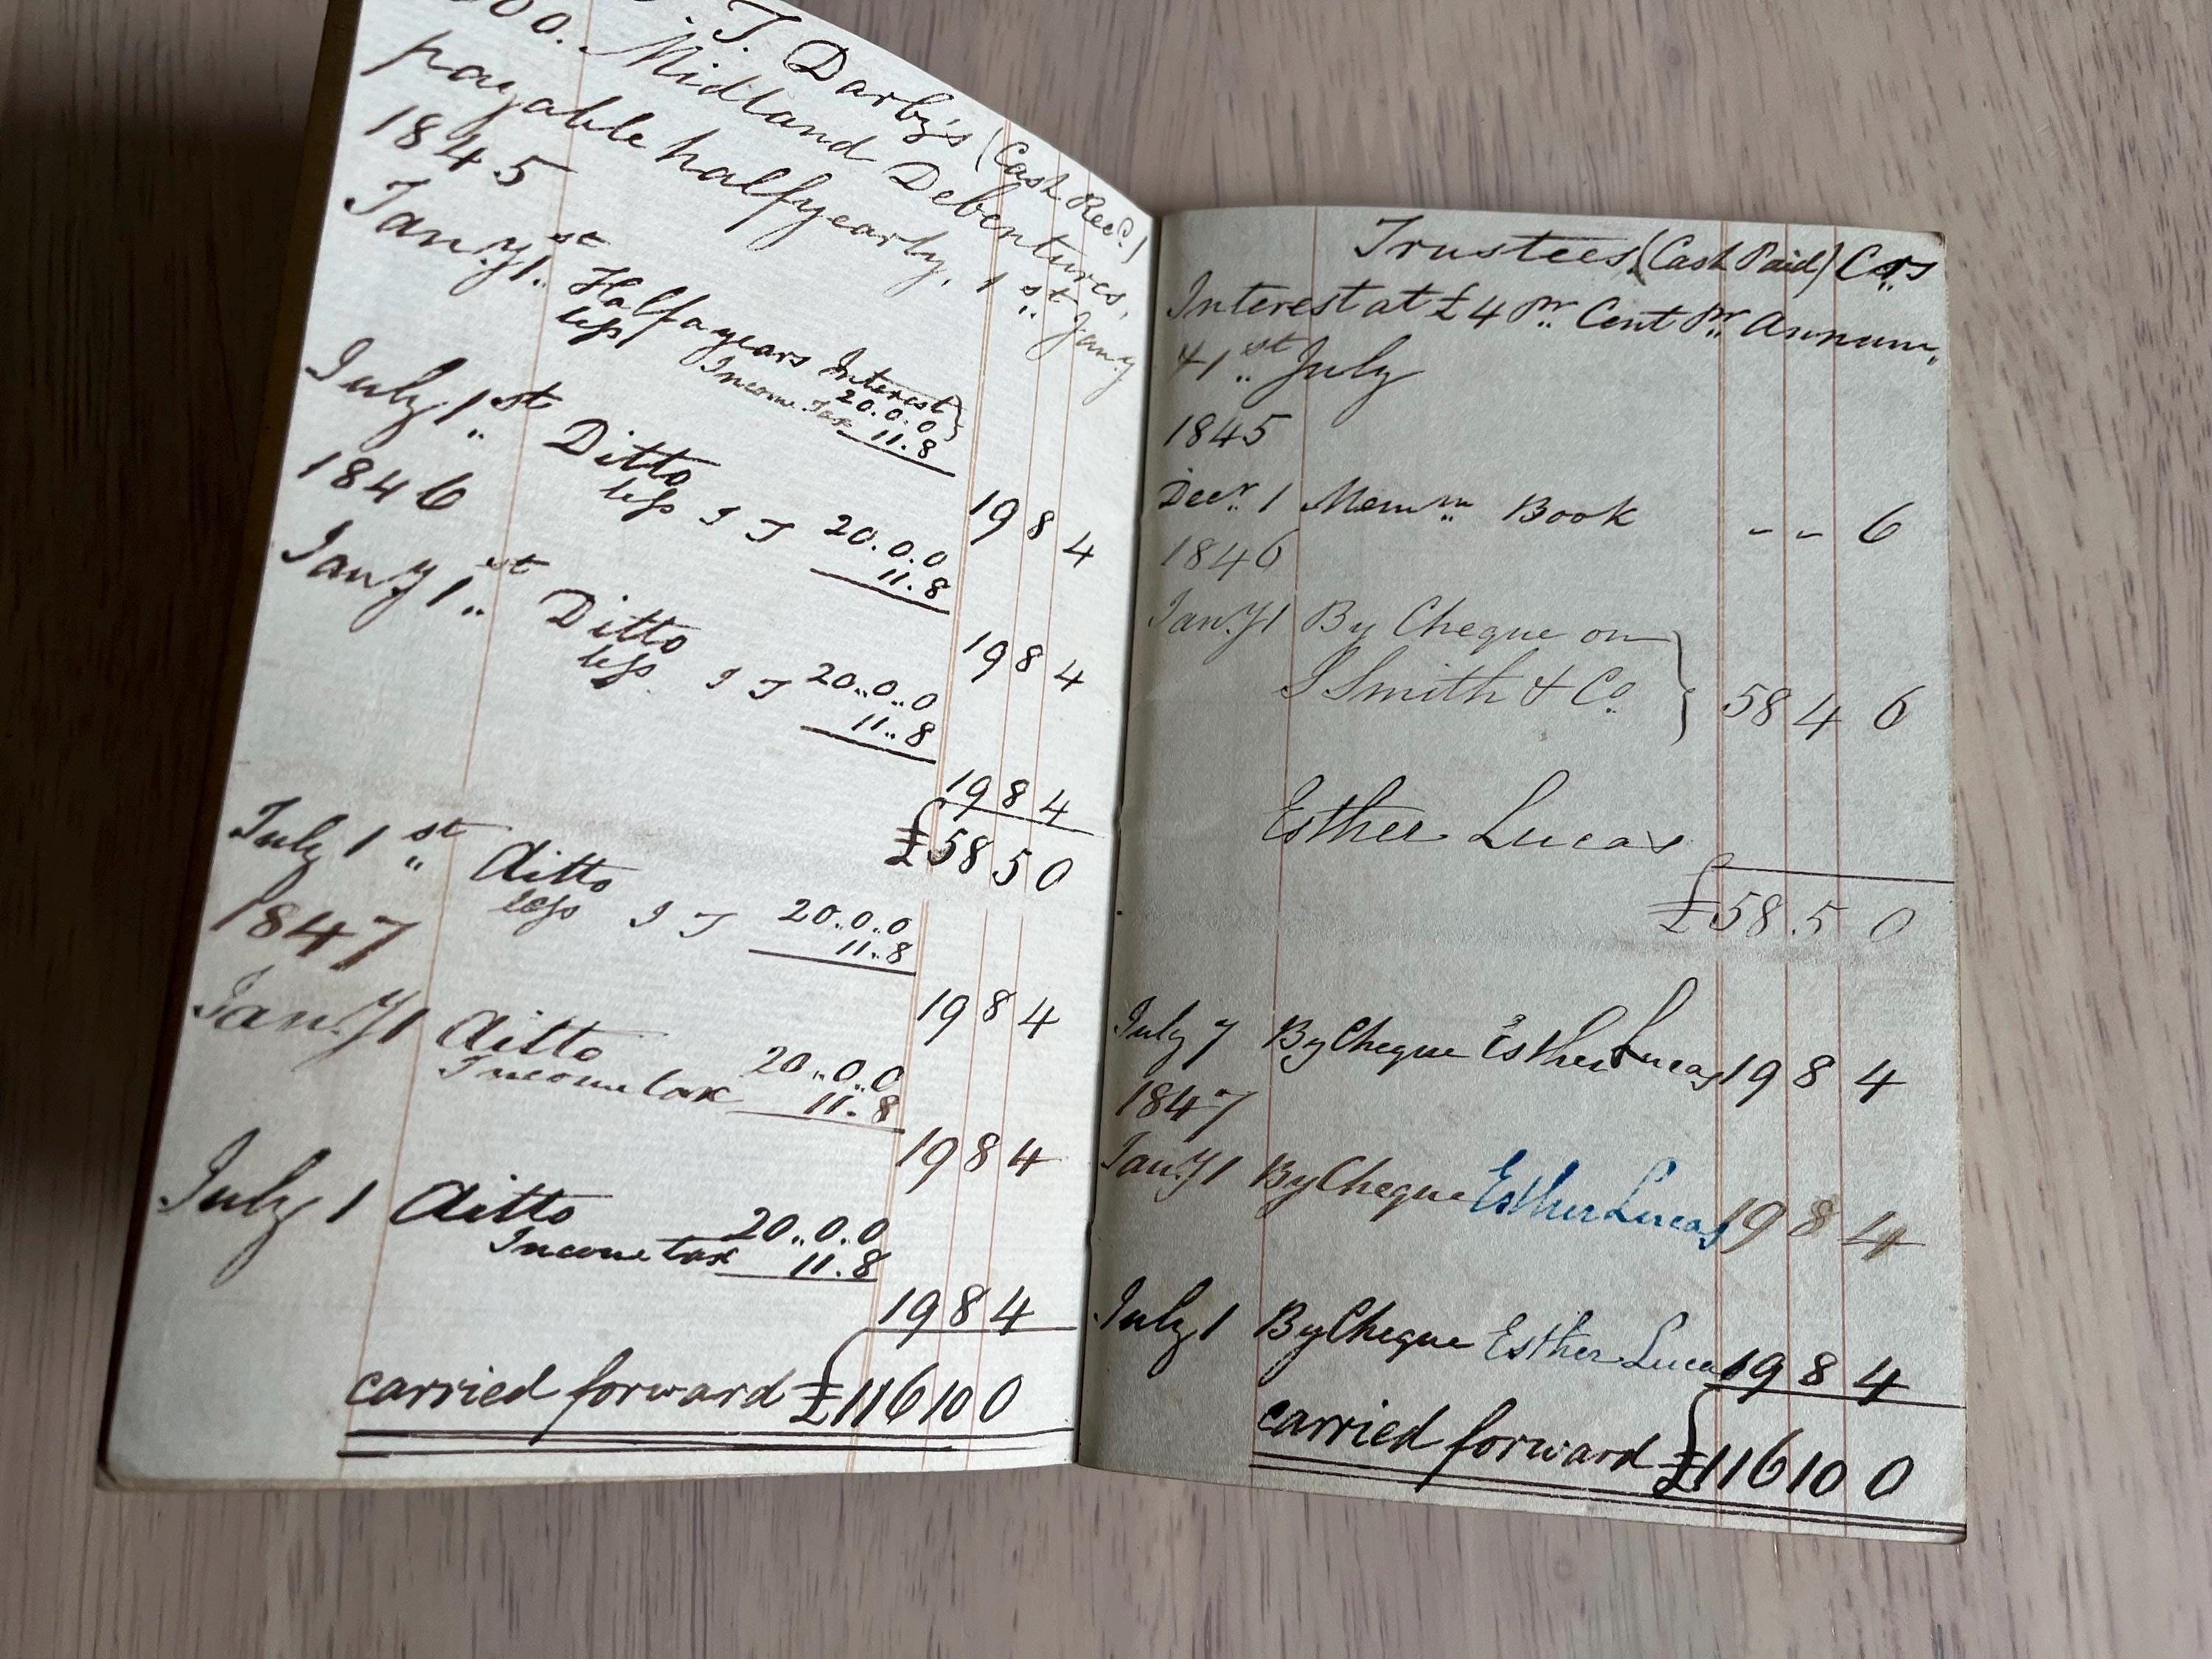 T. Darby's (Cash Recd.)
00. Midland Debentures,
payable halfyearly, 1st Jany
1845
Jany 1st Half a years Interest
20.0.0
less Income Tax 11.8
19 8 4
July 1st Ditto 20.0.0
less I T 11.8
19 8 4
1846
Jany 1st Ditto 20..0..0
less I T 11..8
19 8 4
£58 5 0
July 1st Ditto 20..0..0
less I T 11..8
19 8 4
1847
Jany 1 Ditto 20..0..0
Income tax 11.8
19 8 4
July 1 Ditto 20..0.0
Income tax 11.8
19 8 4
carried forward £116 10 0
Trustees (Cash Paid)
Interest at £4 Pr. Cent Pr. Annum
& 1st July
1845
Decr. 1 Memm Book - - 6
1846
Jany 1 By Cheque on
I Smith & Co. 58 4 6
Esther Lucas
£58.5 0
July 7 By Cheque Esther Lucas 19 8 4
1847
Jany 1 By Cheque Esther Lucas 19 8 4
July 1 By Cheque Esther Lucas 19 8 4
carried forward £116 10 0